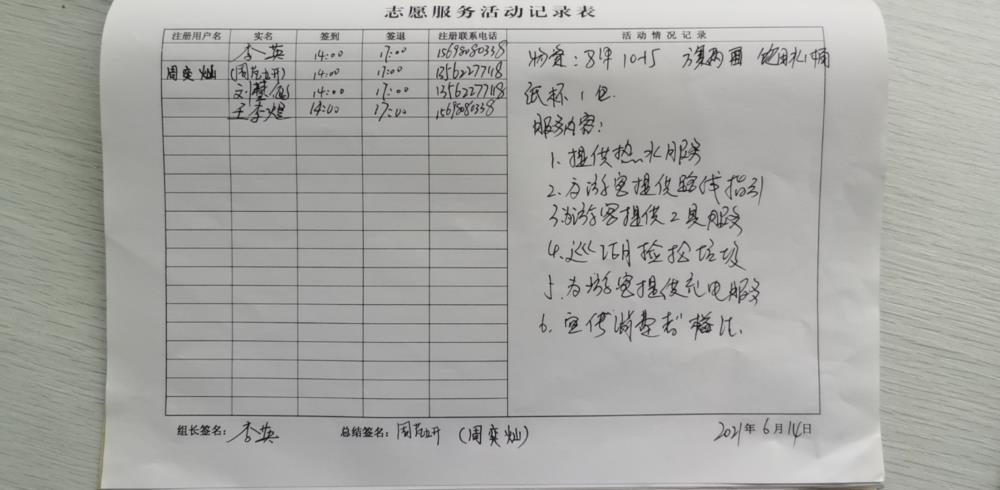 志愿服务活动记录表
注册用户名 实名 签到 签退 注册联系电话 活动情况记录
李英 14:00 17:00 15698080338
周奕灿 14:00 17:00 13562277118
14:00 17:00 13562277118
王李煜 14:00 17:00 15698080338
物资:8件 10-15 两面 饮用水1桶
纸杯1包
服务内容:
1.提供热水服务
2.为游客提供路线指引
3.为游客提供工具服务
4.巡 捡拾垃圾
5.为游客提供充电服务
6.宣传消费者 法.
组长签名:李英 总结签名: (周奕灿) 2021年6月14日